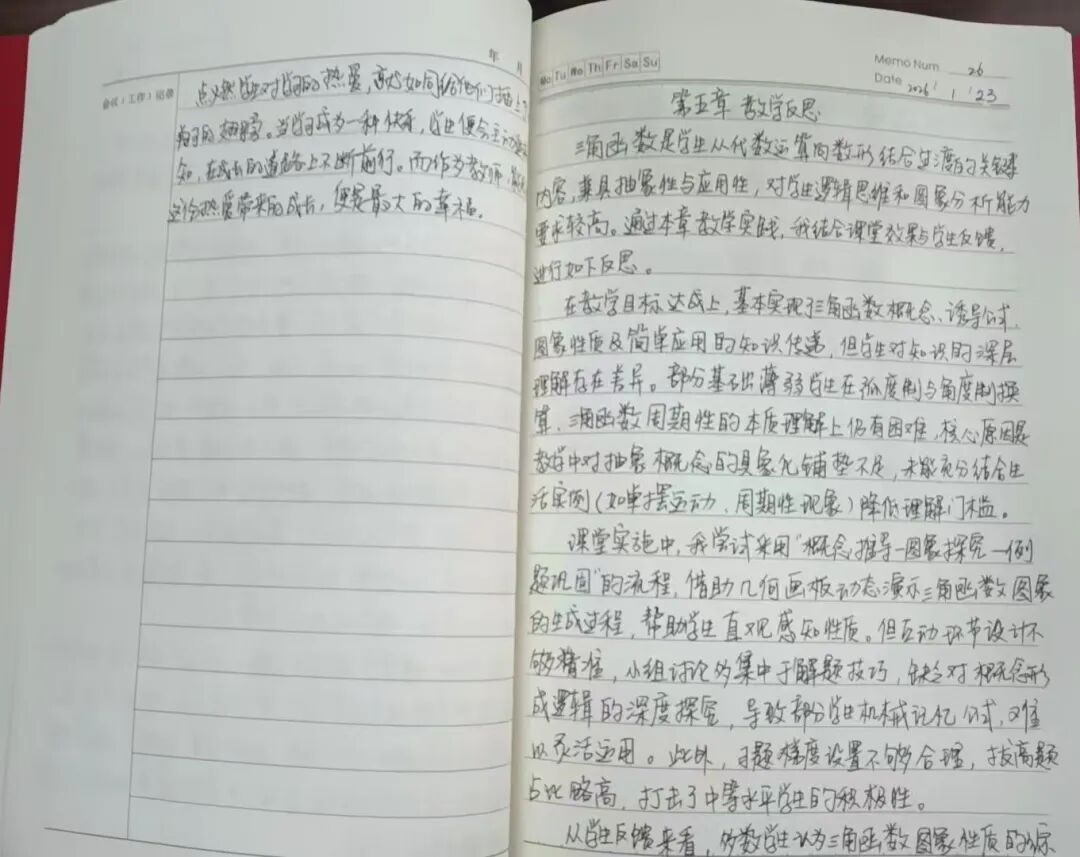 年 月
会议(工作)记录
点燃学生对学习的热爱,就如同给他们插上了
的翅膀。当学习成为一种快乐,学生便会主动
知,在成长的道路上不断前行。而作为教师,
这份热爱带来的成长,便是最大的幸福。
Mo Tu We Th Fr Sa Su
Memo Num 26
Date 2026 / 1 / 23
第五章 教学反思
三角函数是学生从代数运算向数形结合过渡的关键
内容,兼具抽象性与应用性,对学生逻辑思维和图象分析能力
要求较高。通过本章教学实践,我结合课堂效果与学生反馈,
进行如下反思。
在教学目标达成上,基本实现了三角函数概念、诱导公式、
图象性质及简单应用的知识传递,但学生对知识的深层
理解存在差异。部分基础薄弱学生在弧度制与角度制换
算、三角函数周期性的本质理解上仍有困难,核心原因是
教学中对抽象概念的具象化铺垫不足,未能充分结合生
活实例(如单摆运动、周期性现象)降低理解门槛。
课堂实施中,我尝试采用“概念推导—图象探究—例
题巩固”的流程,借助几何画板动态演示三角函数图象
的生成过程,帮助学生直观感知性质。但互动环节设计不
够精准,小组讨论多集中于解题技巧,缺乏对概念形
成逻辑的深度探究,导致部分学生机械记忆公式,难
以灵活运用。此外,习题梯度设置不够合理,拔高题
占比略高,打击了中等水平学生的积极性。
从学生反馈来看,多数学生认为三角函数图象性质的